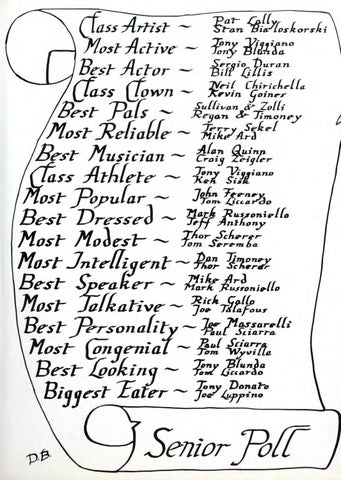 Class Artist ~ Pat Lally
Stan Bialoskorski
Most Active ~ Tony Viggiano
Tony Blunda
Best Actor ~ Sergio Duran
Bill Lillis
Class Clown ~ Neil Chirichella
Kevin Goiner
Best Pals ~ Sullivan & Zolli
Regan & Timoney
Most Reliable ~ Terry Sekel
Mike Ard
Best Musician ~ Alan Quinn
Craig Zeigler
Class Athlete ~ Tony Viggiano
Ken Sisk
Most Popular ~ John Feeney
Tom Liccardo
Best Dressed ~ Mark Russoniello
Jeff Anthony
Most Modest ~ Thor Scherer
Tom Seremba
Most Intelligent ~ Dan Timoney
Thor Scherer
Best Speaker ~ Mike Ard
Mark Russoniello
Most Talkative ~ Rick Gallo
Joe Talafous
Best Personality ~ Joe Massarelli
Paul Sciarra
Most Congenial ~ Paul Sciarra
Tom Wyville
Best Looking ~ Tony Blunda
Tom Liccardo
Biggest Eater ~ Tony Donato
Joe Luppino
Senior Poll
D.B.